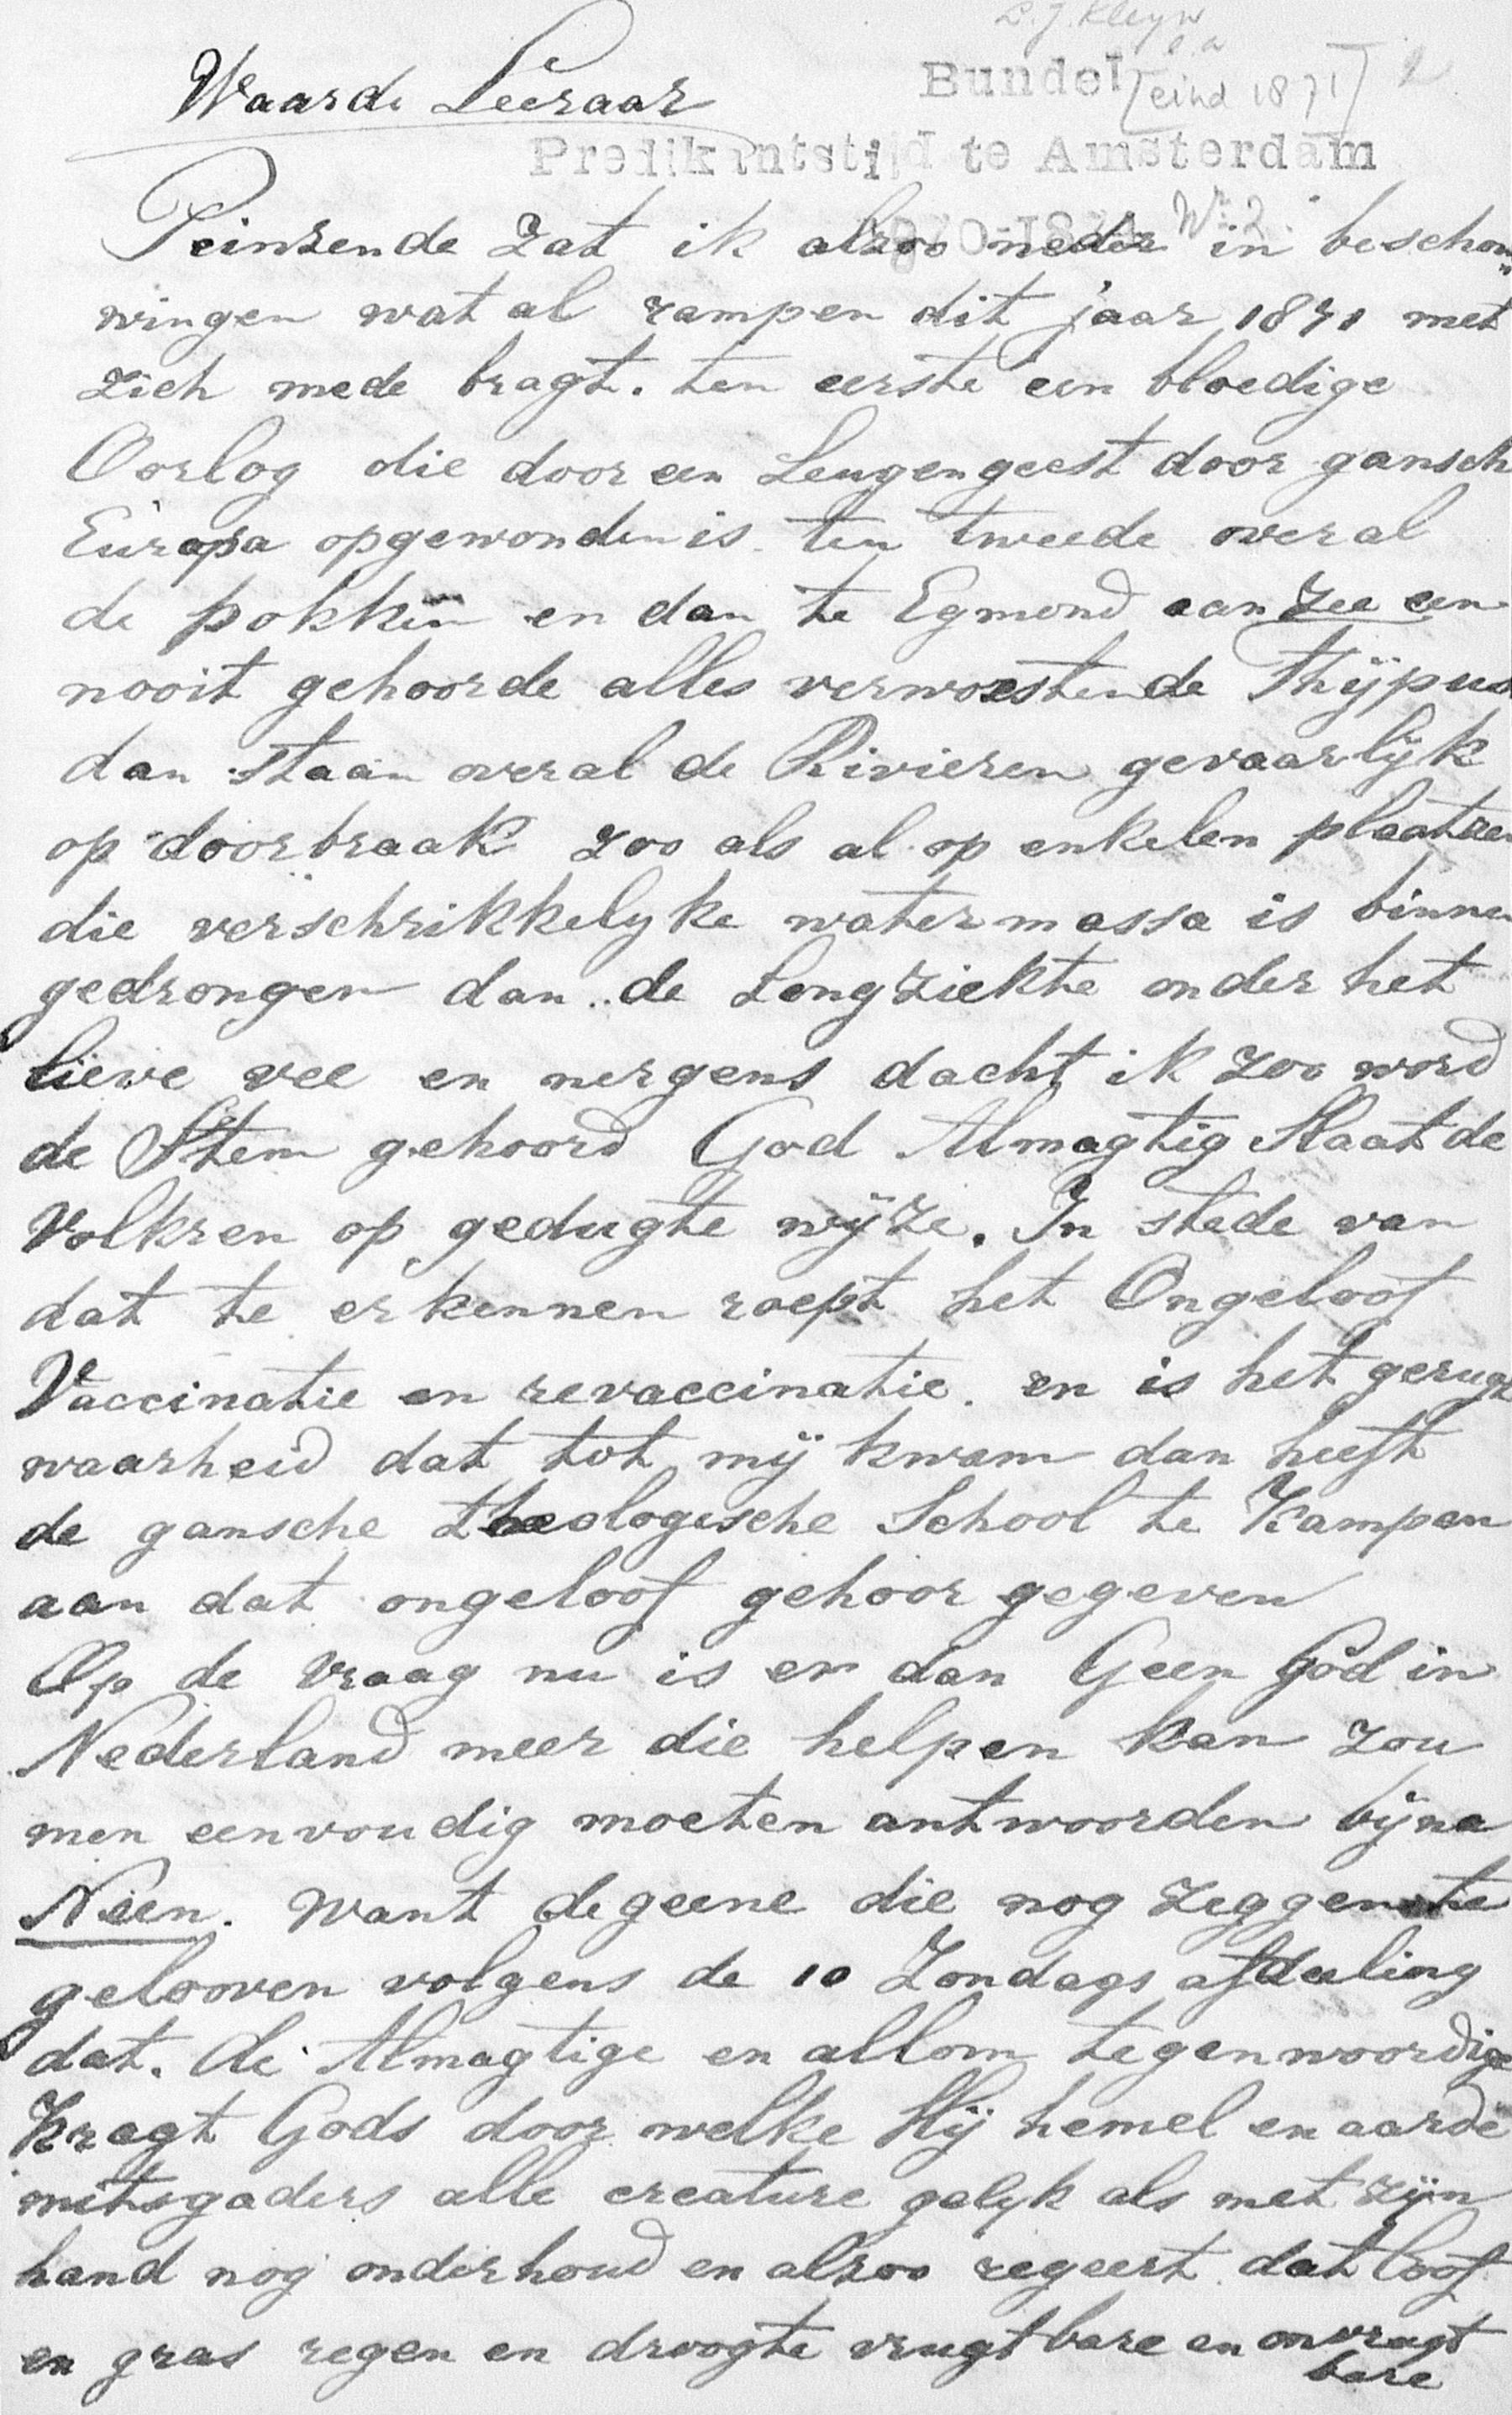 L. J. Kleyn
e.a
Waarde Leeraar
Bundel [eind 1871] 2
Predikantstijd te Amsterdam
1870-1874 No 2
Peinzende zat ik alzoo neder in beschou„
wingen wat al rampen dit jaar 1871 met
zich mede bragt. ten eerste een bloedige
Oorlog die door een Leugengeest door gansch
Europa opgewonden is. ten tweede overal
de pokken en dan te Egmond aan Zee een
nooit gehoorde alles verwoestende Thijpus
dan staan overal de Rivieren gevaarlijk
op doorbraak zoo als al op enkelen plaatzen
die verschrikkelyke watermassa is binnen
gedrongen dan de Longziekte onder het
lieve vee en nergens dacht ik zoo word
de Stem gehoord God Almagtig Slaat de
Volkren op gedugte wijze. In stede van
dat te erkennen roept het Ongeloof
Vaccinatie en revaccinatie. en is het gerugt
waarheid dat tot mij kwam dan heeft
de gansche theologische School te Kampen
aan dat ongeloof gehoor gegeven
Op de vraag nu is er dan Geen God in
Nederland meer die helpen kan zou
men eenvoudig moeten antwoorden bijna
Neen. want degeene die nog zeggen te
gelooven volgens de 10 Zondags afdeeling
dat. de Almagtige en allom tegenwoordige
Kragt Gods door welke Hij hemel en aarde
mitsgaders alle creature gelijk als met zijn
hand nog onderhoud en alzoo regeert dat loof
en gras regen en droogte vrugtbare en onvrugt
bare